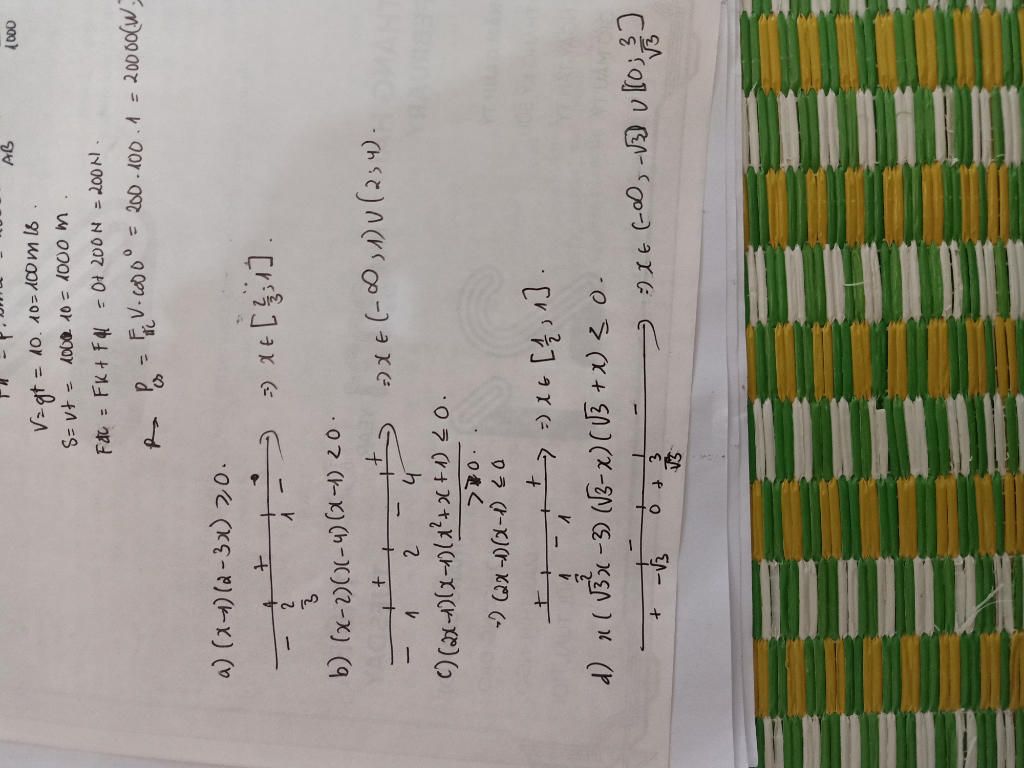 1000
AB
V=gt = 10.10=100m/s.
S=vt = 100.10=1000 m.
= FK+F = 0+200N=200N.
P = F.V.cos0° = 200.100.1 = 20000(W)
a) (x-1)(2-3x) ≥0.
- 2/3 + 1 - => x ∈ [2/3; 1].
b) (x-2)(x-4)(x-1) <0.
- 1 + 2 - 4 + => x ∈ (-∞; 1) ∪ (2; 4).
c) (2x-1)(x-1)(x²+x+1) ≤ 0.
>0.
=> (2x-1)(x-1) ≤ 0
+ 1/2 - 1 + => x ∈ [1/2; 1].
d) x(√3x-3)(√3-x)(√3+x) ≤ 0.
+ -√3 - 0 + 3/√3 - => x ∈ (-∞; -√3] ∪ [0; 3/√3]